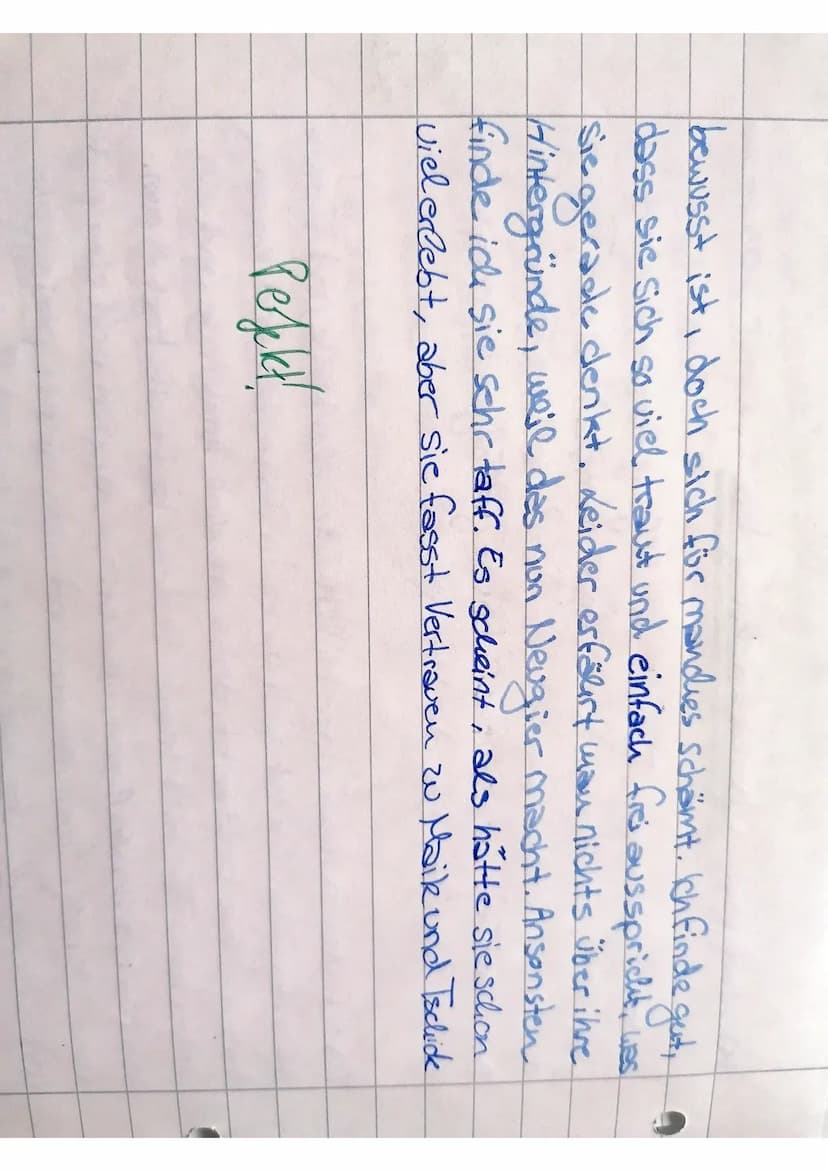 bewusst ist, doch sich für manches schämt. Ich finde gut,
dass sie sich so viel traut und einfach frei ausspricht, was
sie gerade denkt. Leider erfährt man nichts über ihre
Hintergründe, weil das nun Neugier macht. Ansonsten
finde ich sie sehr taff. Es scheint, als hätte sie schon
viel erlebt, aber sie fasst Vertrauen zu Maik und Tschick
Pefekt!